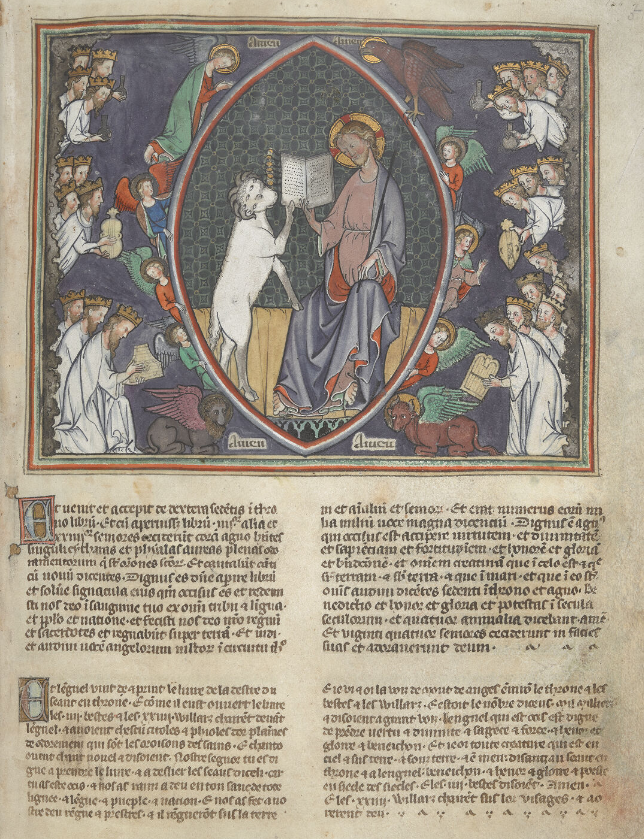 Amen Amen
Amen Amen
Et uenit et accepit de dextera sedētis i thro
no librū. Et cū aperuisset librū. iiijor alia et
xxiiijor seniores ceciderūt corā agno hñtes
singuli cytharas et phyalas aureas plenas odo
ramentorum q̄ st̄ orōnes scōr. Et cantabāt cāti
cū nouū dicentes. Dignus es dn̄e apire librū
et soluere signacula eius qm̄ occisus es et redem
isti nos deo ī sanguine tuo ex om̄i tribu & līgua.
et pp̄lo et natione. et fecisti nos deo nr̄o regnū
et sacerdotes et regnabūt super terrā. Et uidi.
et audiui uocē angelorum multor̄ ī circuitu thro
ni et aīaliū et senior̄. Et erat numerus eorū mi
lia miliū uoce magna dicentiū. Dignus ē agn9
qui occisus est accipere uirtutem. et diuinitatē
et sapiētiam et fortitudīem. et honorē et gloriā
et bn̄dictionē. et omēm creaturā que ī celo est & q̄
sr̄ terram. & sb̄ terrā. & que ī mari. et que ī eo st̄.
om̄s audiui dicētes sedenti ī throno et agno. Be
nedictio et honor et gloria et potestas ī secula
seculorum. et quatuor animalia dicebant. amē.
Et viginti quatuor seniores ceciderunt in facies
suas et adorauerunt deum.
Et lēguel vint & aprint le liure de la destre du
seant en throne. E cōme il eust ouuert le liure
les .iiij. bestes & les .xxiiij. uillarz chaiēt deuāt
lēgnel. & auoient chescū citoles & phioles dor plaines
de odoremenz qui sōt les oroisons des sains. E chanto
ouent chāt nouel & disoient. Nostre segnor tu es di
gne a prendre le liure. & a deslier les seaus
tu as este ocis. & nos as raint a deu en ton sanc de tote
lignee. & lēgue. & pueple. & nacion. E nos as fet a no
stre deu regne & prestres. & il regnerōt sus la terre
E ie vi & oi la voiz de mout de anges ēuirō le throne & les
bestes & les uillarz. E estoit le nōbre
& disoient a grant voiz. lengnel qui est ocis est digne
de prēdre vertu & diuinite & sagece & force. & henor et
glorie & beneichon. Et ie oi toute creature qui est en
ciel & sus terre. & souz terre. & ē mer. disanz au seant en
throne & a lengnel. beneichon. & henor & glorie & poeste
en siecle des siecles. E les .iiij. bestes disoiēt. Amen.
E les .xxiiij. uillarz chaiēt sus lor uisages. & ao
rerent deu.